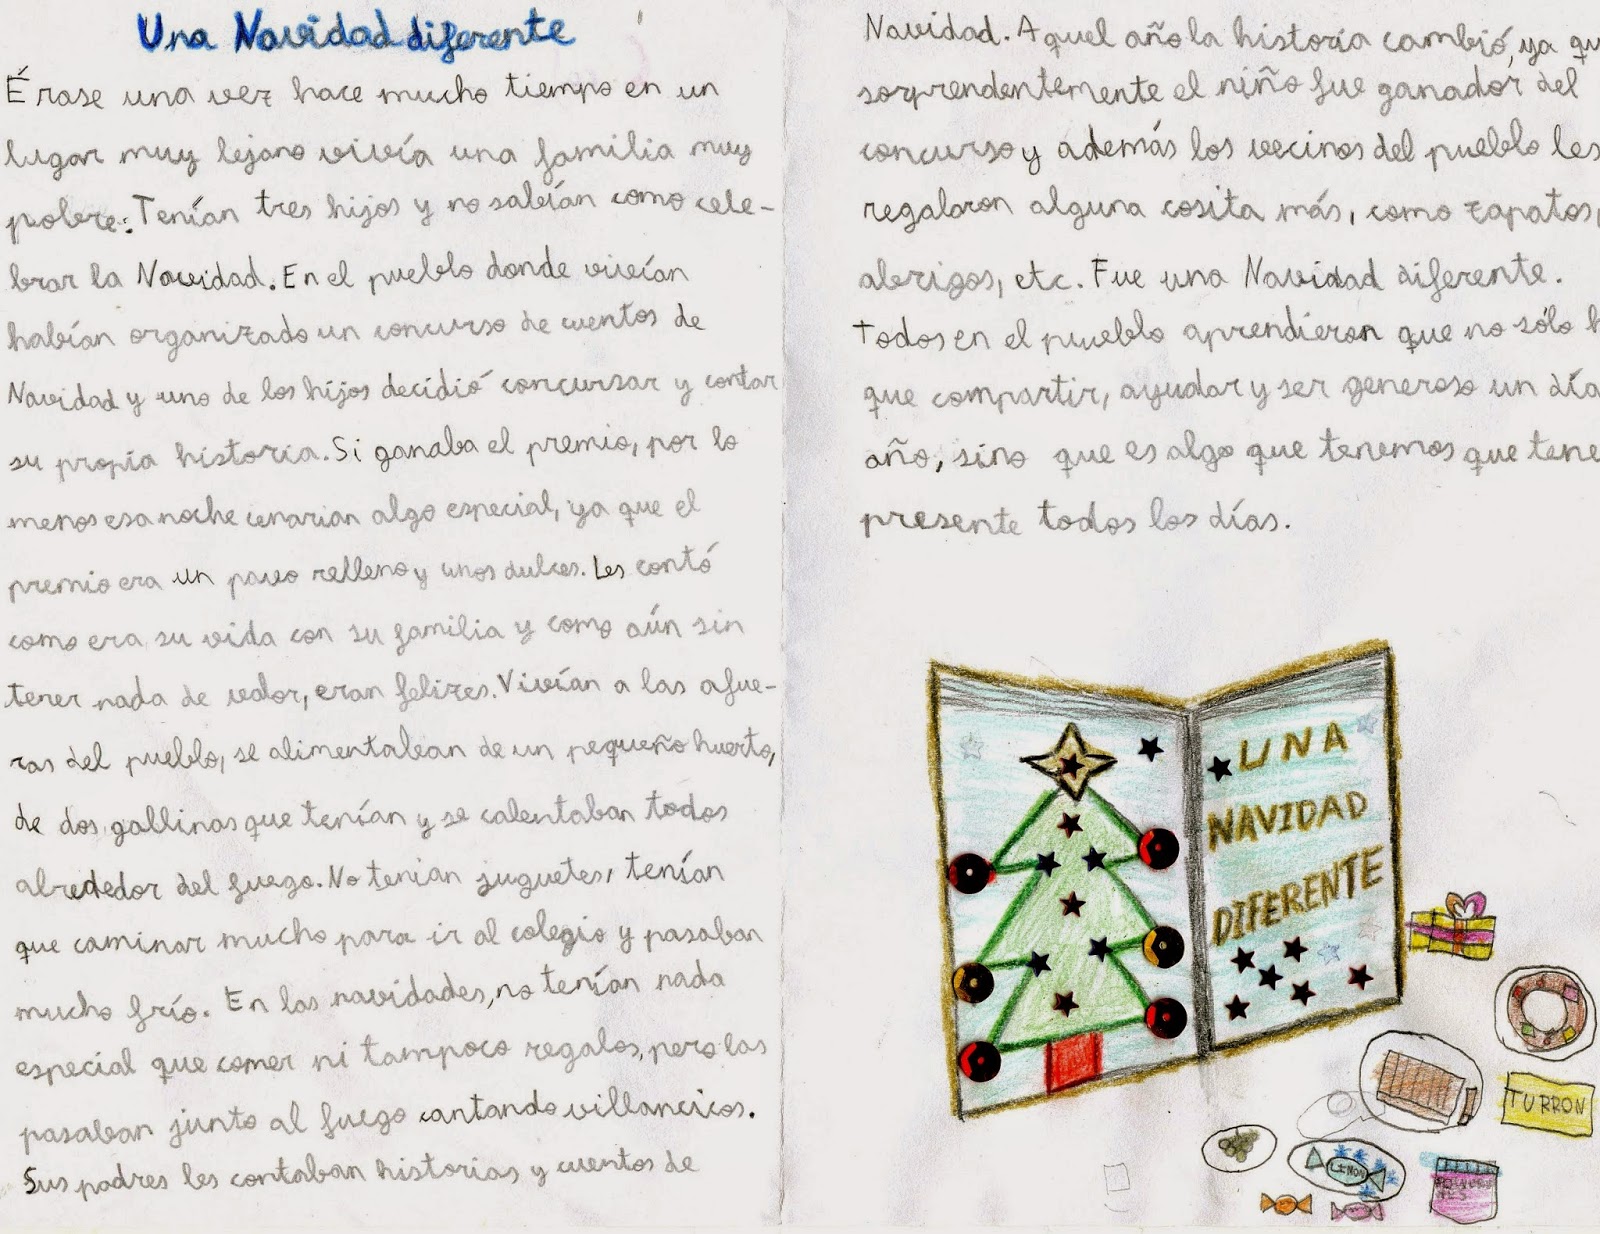 Una Navidad diferente
Érase una vez hace mucho tiempo en un
lugar muy lejano vivía una familia muy
pobre. Tenían tres hijos y no sabían como cele-
brar la Navidad. En el pueblo donde vivían
habían organizado un concurso de cuentos de
Navidad y uno de los hijos decidió concursar y contar
su propia historia. Si ganaba el premio, por lo
menos esa noche cenarian algo especial, ya que el
premio era un pavo relleno y unos dulces. Les contó
como era su vida con su familia y como aún sin
tener nada de valor, eran felizes. Vivían a las afue-
ras del pueblo, se alimentaban de un pequeño huerto,
de dos gallinas que tenían y se calentaban todos
alrededor del fuego. No tenian juguetes, tenían
que caminar mucho para ir al colegio y pasaban
mucho frío. En las navidades, no tenían nada
especial que comer ni tampoco regalos, pero las
pasaban junto al fuego cantando villancicos.
Sus padres les contaban historias y cuentos de
Navidad. Aquel año la historia cambió, ya qu
sorprendentemente el niño fue ganador del
concurso y además los vecinos del pueblo les
regalaron alguna cosita más, como zapatos,
abrigos, etc. Fue una Navidad diferente.
Todos en el pueblo aprendieron que no sólo h
que compartir, ayudar y ser generoso un día
año, sino que es algo que tenemos que tene
presente todos los días.
UNA
NAVIDAD
DIFERENTE
TURRON
LIMON